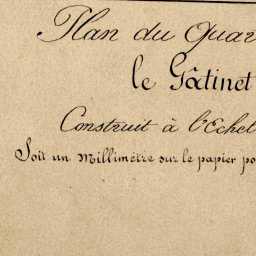 Plan du Quar
le Gâtinet
Construit à l'Echel
Soit un Millimètre sur le papier po